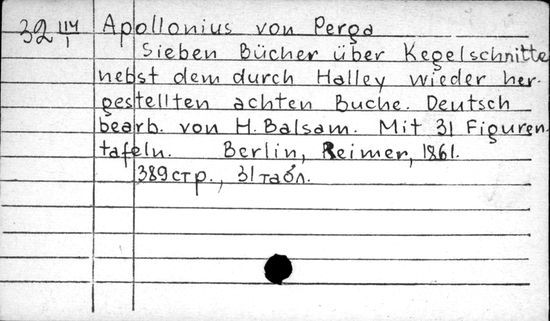 32 114/1 Apollonius von Perga
Sieben Bücher über Kegelschnitte
nebst dem durch Halley wieder her-
gestellten achten Buche. Deutsch
bearb. von H. Balsam. Mit 31 Figuren-
tafeln. Berlin, Reimer, 1861.
389 стр., 31 табл.